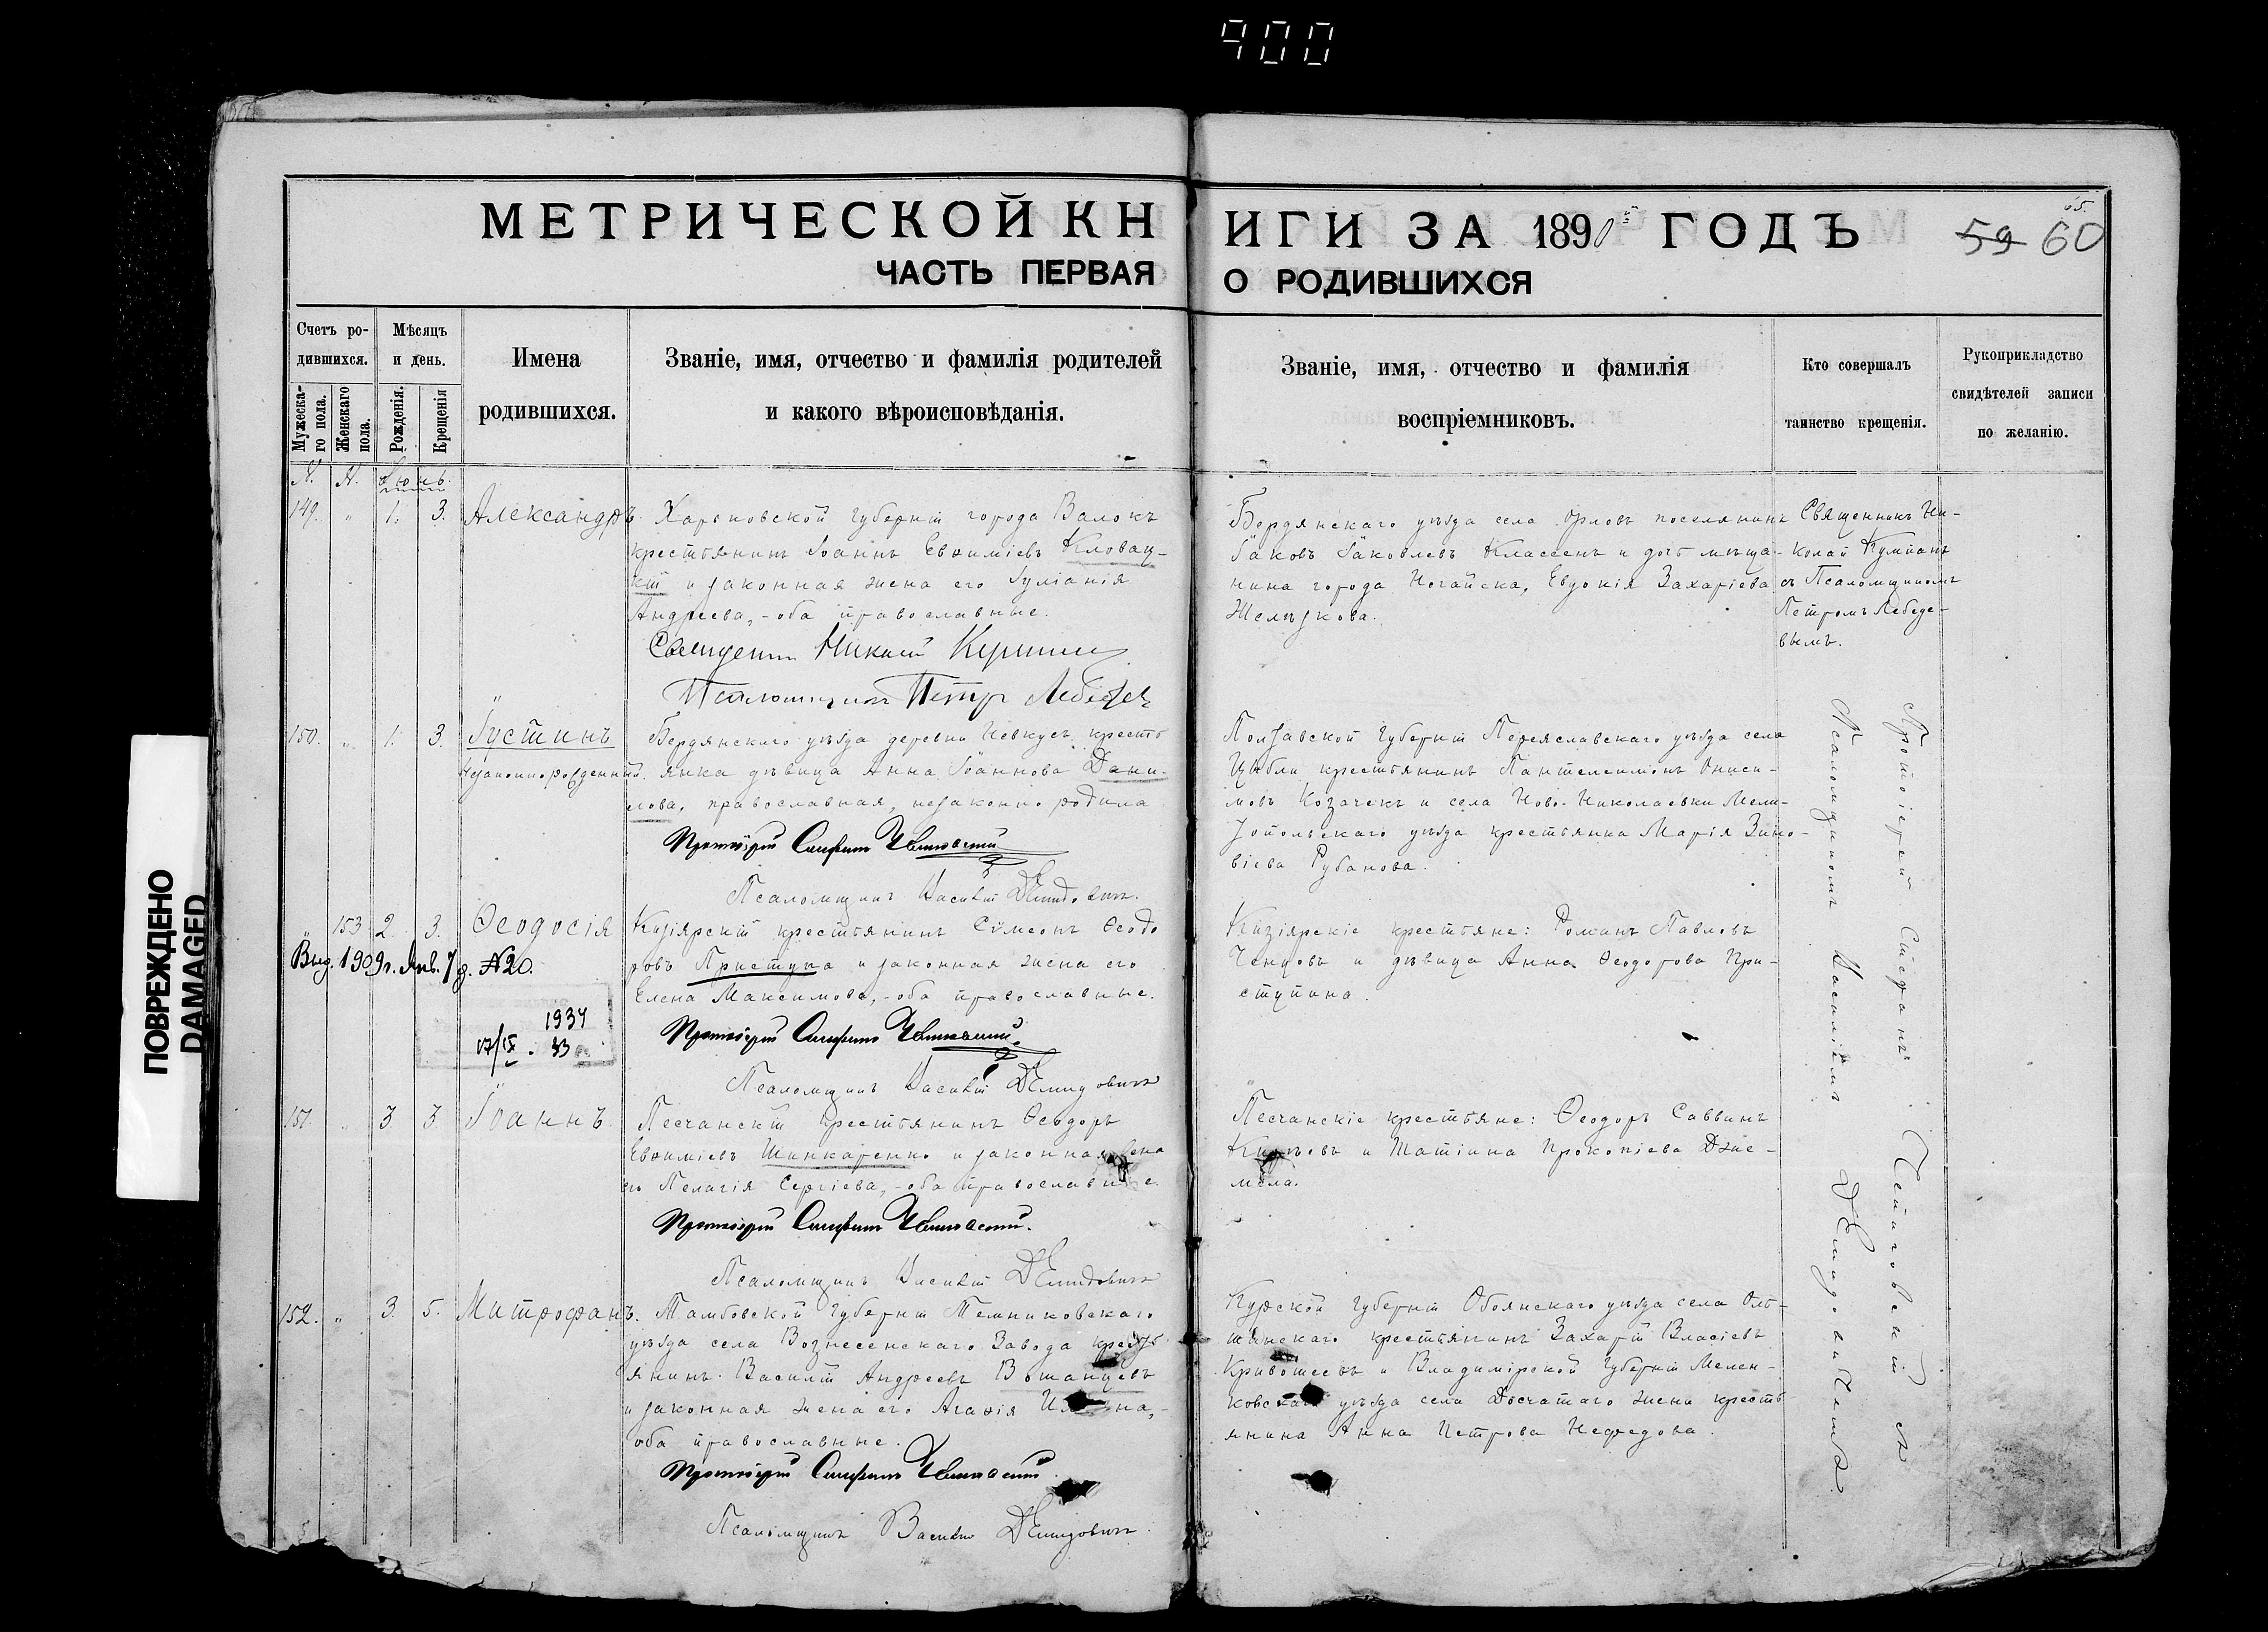 900
ПОВРЕЖДЕНО
DAMAGED
МЕТРИЧЕСКОЙ КНИГИ ЗА 1890й ГОДЪ
59 60
65.
ЧАСТЬ ПЕРВАЯ О РОДИВШИХСЯ
Счетъ ро-
дившихся.
Мужеска-
го пола.
Женскаго
пола.
Мѣсяцъ
и день.
Рожденія.
Крещенія
Имена
родившихся.
Званіе, имя, отчество и фамилія родителей
и какого вѣроисповѣданія.
Званіе, имя, отчество и фамилія
воспріемниковъ.
Кто совершалъ
таинство крещенія.
Рукоприкладство
свидѣтелей записи
по желанію.
N. N. Іюнь.
149. " 1. 3. Александръ.
Харьковской губерніи города Валокъ
крестьянинъ Іоаннъ Евѳиміевъ Кловац-
кій и законная жена его Іуліанія
Андреева, - оба православные.
Священникъ Николай
Псаломщикъ Петръ Лебедевъ
Бердянскаго уѣзда села Орловъ поселянинъ
Іаковъ Іаковлевъ Классенъ и дочь мѣща-
нина города Ногайска, Евдокія Захаріева
Желѣзкова.
Священникъ Ни-
колай
съ Псаломщикомъ
Петромъ Лебеде-
вымъ.
150. " 1. 3. Іустинъ
Незаконнорожденный.
Бердянскаго уѣзда деревни крестьянка дѣвица Анна Іоаннова Дани-
лова, православная, незаконно родила
Протоіерей Стефанъ
Псаломщикъ Василій Демидовичъ.
Полтавской губерніи Переяславскаго уѣзда села
Цибли крестьянинъ Пантелеимонъ Ониси-
мовъ Козачекъ и села Ново-Николаевки Мели-
топольскаго уѣзда крестьянка Марія Зино-
віева Рубанова.
" 153 2. 3. Ѳеодосія
Выд. 1909 г. Янв. 7 д. №20.
1934
17/IX. 33
Кизіярскій крестьянинъ Сѵмеонъ Ѳеодо
ровъ Приступа и законная жена его
Елена Максимова, - оба православные.
Протоіерей Стефанъ
Псаломщикъ Василій Демидовичъ
Кизіярскіе крестьяне: Романъ Павловъ
Ченцовъ и дѣвица Анна Ѳеодорова При-
ступина.
151. " 3. 3. Іоаннъ.
Песчанскій крестьянинъ Ѳеодоръ
Евѳиміевъ Шинкаренко и законная жена
его Пелагія Сергіева, - оба православные
Протоіерей Стефанъ
Псаломщикъ Василій Демидовичъ
Песчанскіе крестьяне: Ѳеодоръ Саввинъ
и Татіана Прокопіева Дже-
мела.
152. " 3. 5. Митрофанъ.
Тамбовской губерніи Темниковскаго
уѣзда села Вознесенскаго Завода крестьянинъ Василій Андреевъ
и законная жена его Агаѳія
оба православные.
Протоіерей Стефанъ
Псаломщикъ Василій Демидовичъ.
Курской губерніи Обоянскаго уѣзда села
крестьянинъ Захарій Власіевъ
Кривошеевъ и Владимірской губерніи Мелен-
ковскаго уѣзда села Досчатаго жена крестьянина Анна Петрова Нефедова.
Протоіерей Стефанъ съ
Псаломщикомъ Василіемъ Демидовичемъ.